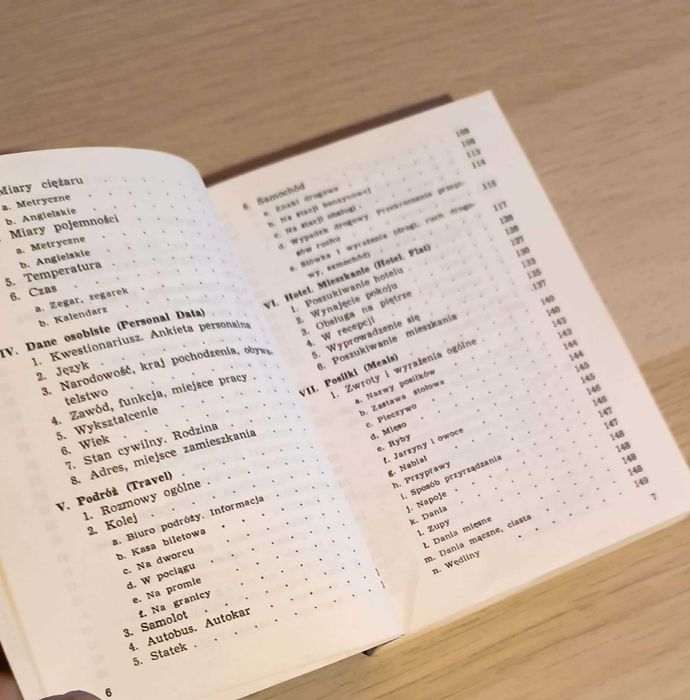 Miary ciężaru
a. Metryczne
b. Angielskie
Miary pojemności
a. Metryczne
b. Angielskie
5. Temperatura
6. Czas
a. Zegar, zegarek
b. Kalendarz
IV. Dane osobiste (Personal Data)
1. Kwestionariusz. Ankieta personalna
2. Język
3. Narodowość, kraj pochodzenia, obywa-
telstwo
4. Zawód, funkcja, miejsce pracy
5. Wykształcenie
6. Wiek
7. Stan cywilny. Rodzina
8. Adres, miejsce zamieszkania
V. Podróż (Travel)
1. Rozmowy ogólne
2. Kolej
a. Biuro podróży. Informacja
b. Kasa biletowa
c. Na dworcu
d. W pociągu
e. Na promie
f. Na granicy
3. Samolot
4. Autobus. Autokar
5. Statek
6
6. Samochód
a. Znaki drogowe
b. Na stacji benzynowej
c. Na stacji obsługi
d. Wypadek drogowy. Przekroczenie przepi-
sów ruchu
e. Słówka i wyrażenia (drogi, ruch drogo-
wy, samochód)
VI. Hotel. Mieszkanie (Hotel. Flat)
1. Poszukiwanie hotelu
2. Wynajęcie pokoju
3. Obsługa na piętrze
4. W recepcji
5. Wyprowadzenie się
6. Poszukiwanie mieszkania
VII. Posiłki (Meals)
1. Zwroty i wyrażenia ogólne
a. Nazwy posiłków
b. Zastawa stołowa
c. Pieczywo
d. Mięso
e. Ryby
f. Jarzyny i owoce
g. Nabiał
h. Przyprawy
i. Sposób przyrządzania
j. Napoje
k. Dania
l. Zupy
ł. Dania mięsne
m. Dania mączne, ciasta
n. Wędliny
108
109
113
114
115
117
126
126
127
130
133
135
137
140
140
143
143
144
144
145
145
146
146
147
147
148
148
148
148
149
7